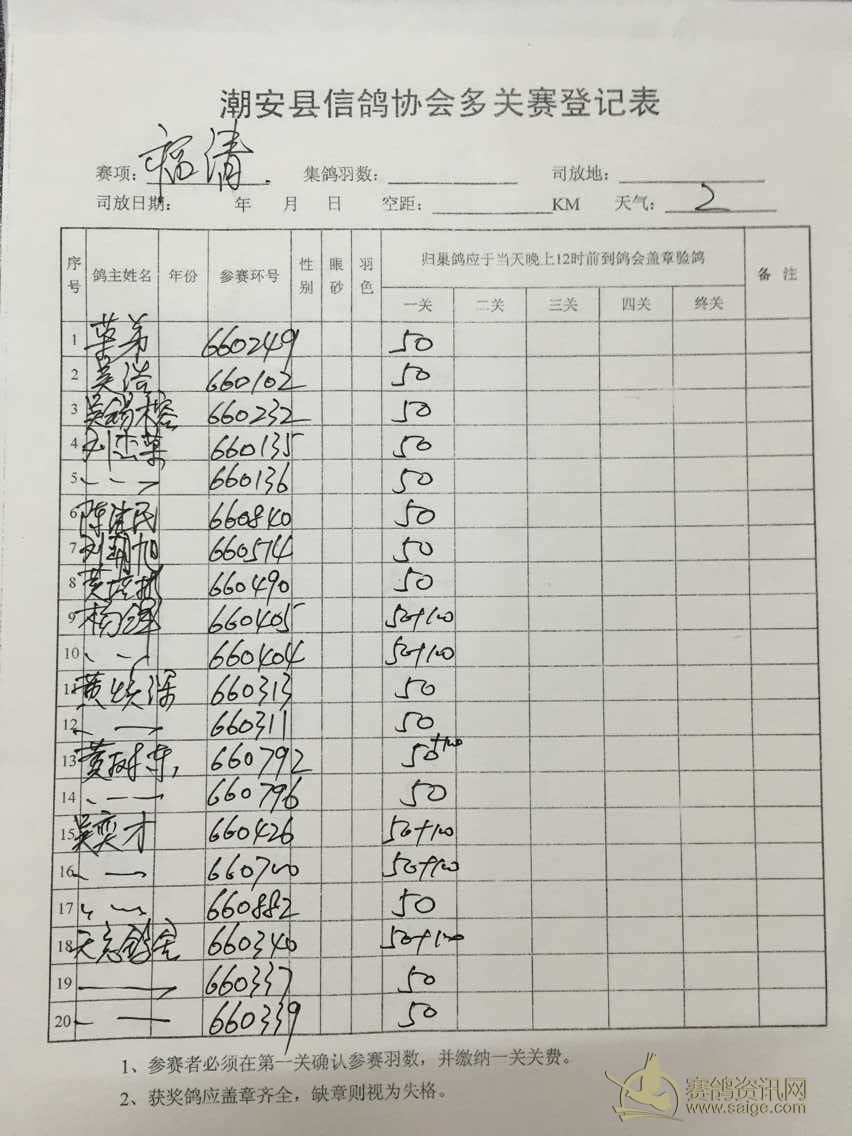 潮安县信鸽协会多关赛登记表
赛项: 福清 集鸽羽数: 司放地:
司放日期: 年 月 日 空距: KM 天气: 2
序号 鸽主姓名 年份 参赛环号 性别 眼砂 羽色 归巢鸽应于当天晚上12时前到鸽会盖章验鸽 备 注
一关 二关 三关 四关 终关
1 660249 50
2 吴浩 660102 50
3 吴锡榕 660232 50
4 660135 50
5 660136 50
6 660840 50
7 660574 50
8 660490 50
9 660405 50+100
10 660404 50+100
11 660313 50
12 660311 50
13 660792 50+100
14 660796 50
15 吴奕才 660426 50+100
16 660700 50+100
17 660882 50
18 660340 50+100
19 660337 50
20 660339 50
1、参赛者必须在第一关确认参赛羽数，并缴纳一关关费。
2、获奖鸽应盖章齐全，缺章则视为失格。
赛鸽资讯网
www.saige.com